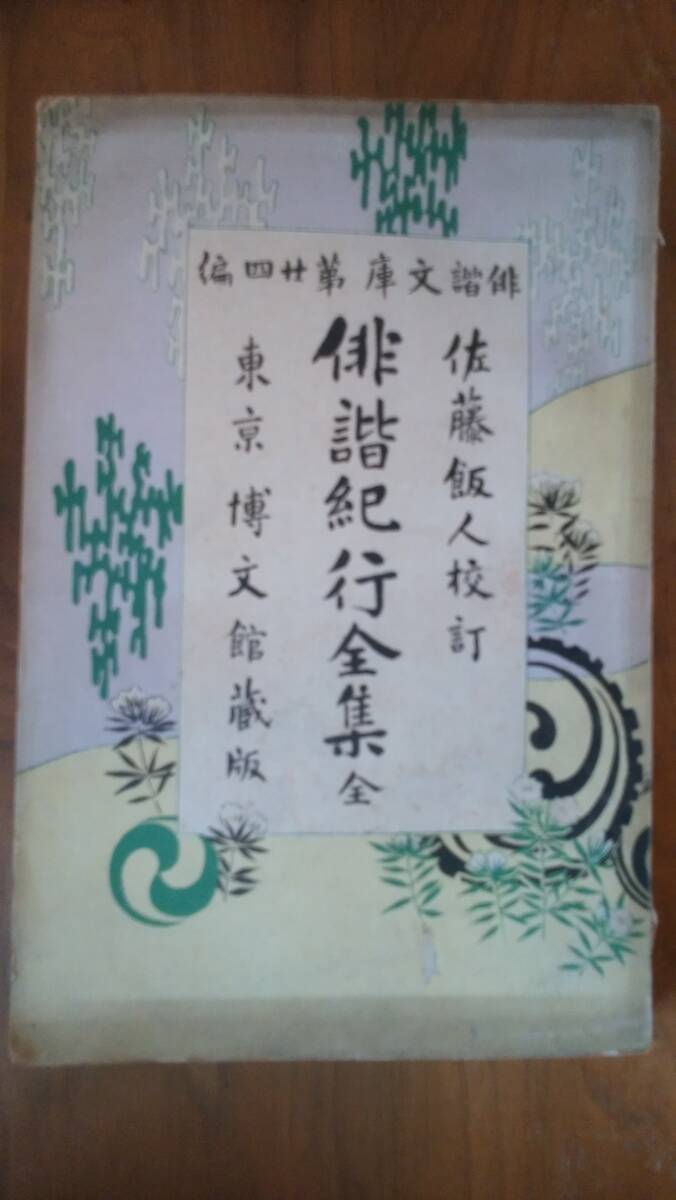 俳諧文庫第廿四編
佐藤飯人校訂
俳諧紀行全集全
東京博文館蔵版